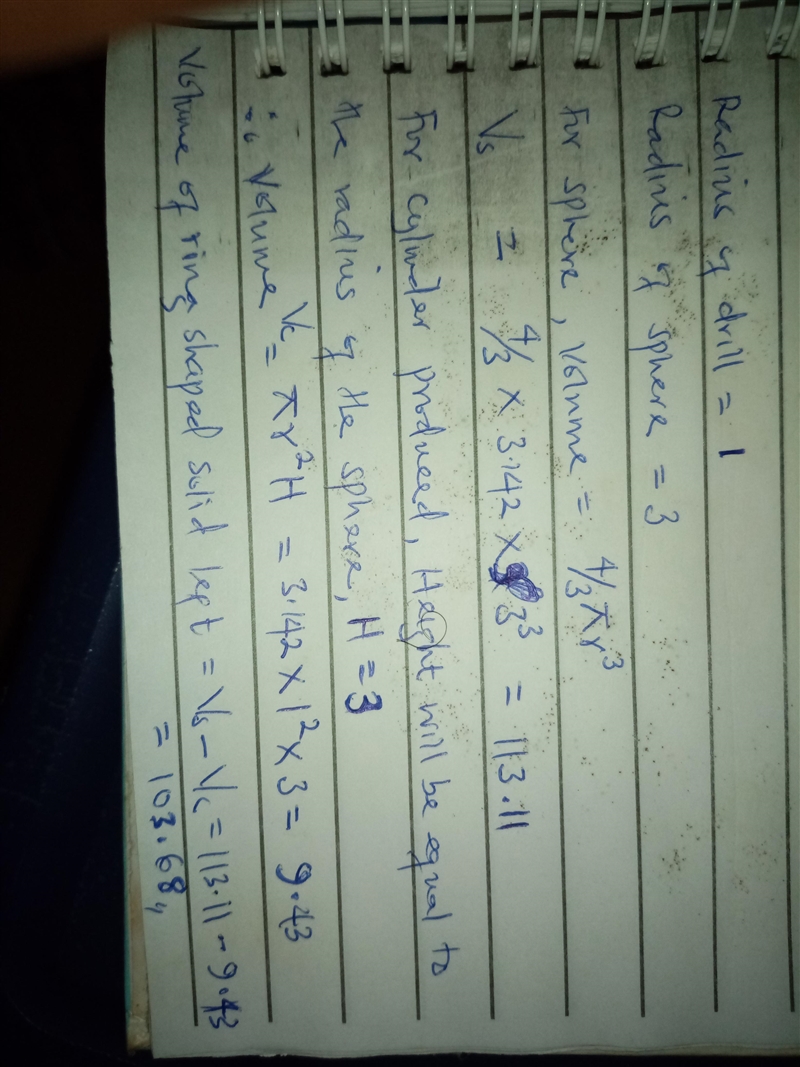 Radius of drill = 1
Radius of sphere = 3
For sphere, Volume = 4/3 πr³
Vs = 4/3 × 3.142 × 3³ = 113.11
For cylinder produced, Height will be equal to
the radius of the sphere, H = 3
∴ Volume Vc = πr²H = 3.142 × 1² × 3 = 9.43
Volume of ring shaped solid left = Vs - Vc = 113.11 - 9.43
= 103.68,,